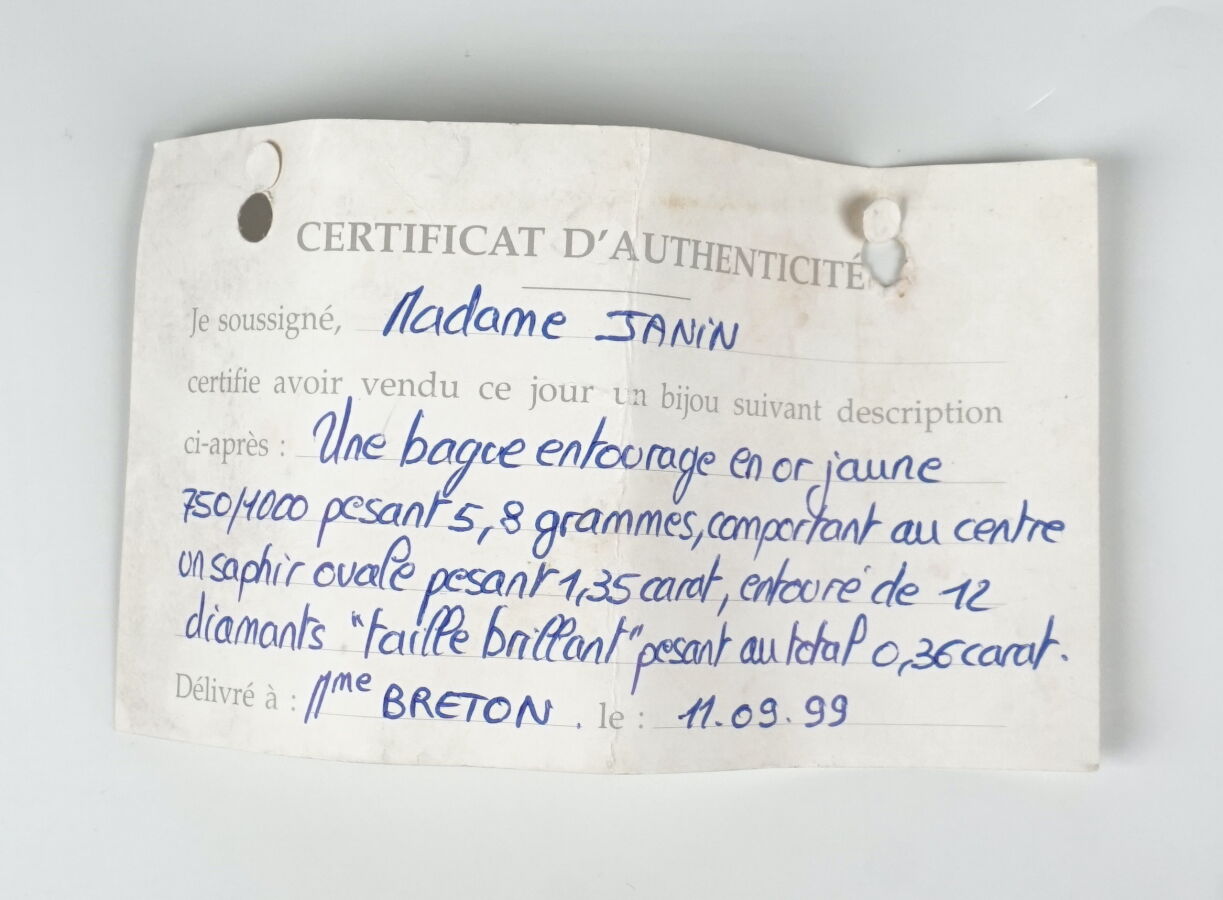 CERTIFICAT D'AUTHENTICITÉ
Je soussigné, Madame JANiN
certifie avoir vendu ce jour un bijou suivant description
ci-après : Une bague entourage en or jaune
750/1000 pesant 5,8 grammes, comportant au centre
un saphir ovale pesant 1,35 carat, entouré de 12
diamants "taille brillant" pesant au total 0,36 carat.
Délivré à : Mme BRETON . le : 11.09.99